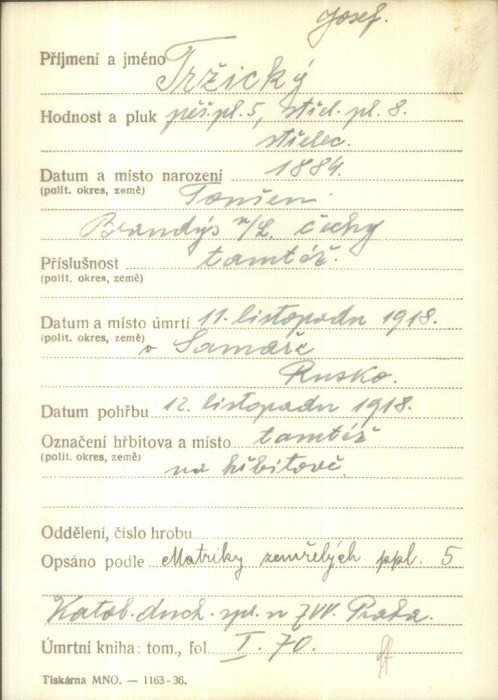 Josef.
Příjmení a jméno Tržický
Hodnost a pluk pěš. pl. 5, střel. pl. 8.
střelec.
Datum a místo narození 1884.
(polit. okres, země) Toušen
Brandýs n/L. Čechy
Příslušnost tamtéž.
(polit. okres, země)
Datum a místo úmrtí 11. listopadu 1918.
(polit. okres, země) v Samaře
Rusko.
Datum pohřbu 12. listopadu 1918.
Označení hřbitova a místo tamtéž
(polit. okres, země) na hřbitově
Oddělení, číslo hrobu
Opsáno podle Matriky zemřelých ppl. 5
Katol. duch. spr. u ZVV. Praha.
Úmrtní kniha: tom., fol. I. 70.
Tiskárna MNO. — 1163-36.